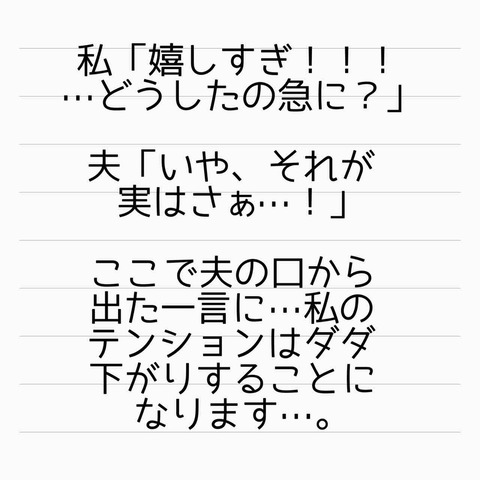 私「嬉しすぎ！！！
…どうしたの急に？」
夫「いや、それが
実はさぁ…！」
ここで夫の口から
出た一言に…私の
テンションはダダ
下がりすることに
なります…。